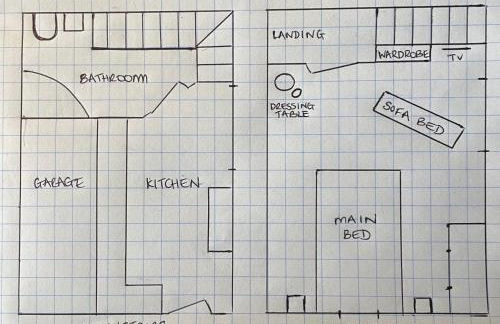 LANDING
WARDROBE
TV
BATHROOM
DRESSING
TABLE
SOFA BED
GARAGE
KITCHEN
MAIN
BED